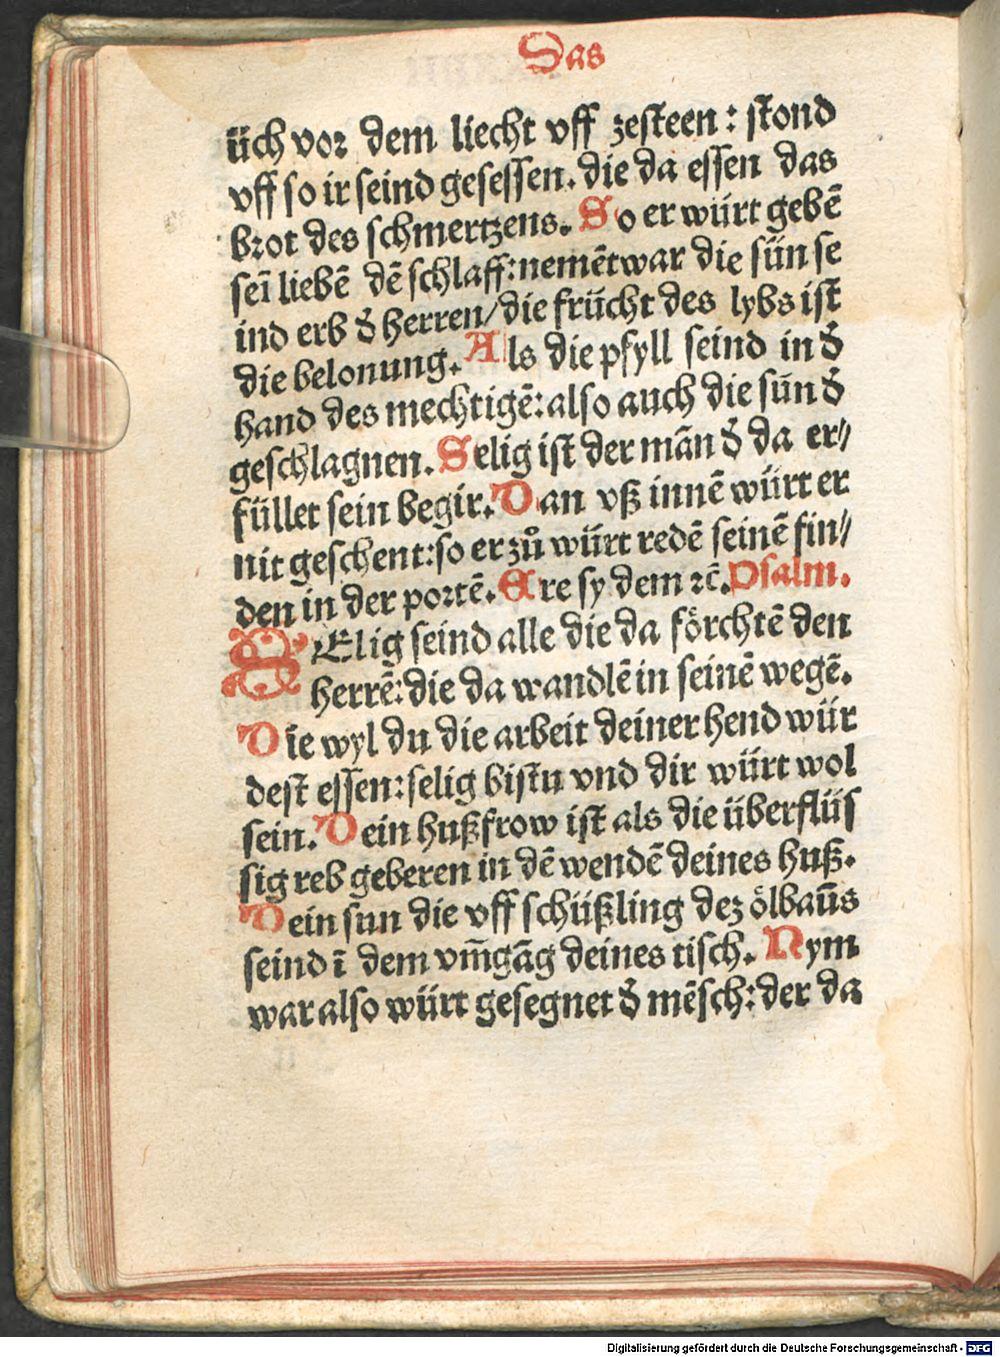 Das
üch vor dem liecht vff zesteen: stond
vff so ir seind gesessen. die da essen das
brot des schmertzens. So er würt gebē
sei lieben̄ dē schlaff: nemēt war die sün se
ind erb d̕ herren/ die frücht des lybs ist
die belonung. Als die pfyll seind in d̕
hand des mechtigē: also auch die sün d̕
geschlagnen. Selig ist der mān d̕ da er⸗
füllet sein begir. Dan vß innē würt er
nit geschent: so er zů würt redē seinē fin⸗
den in der portē. Ere sy dem ⁊c̄. Psalm.
SElig seind alle die da förchtē den
herrē: die da wandlē in seinē wegē.
Die wyl du die arbeit deiner hend wür
dest essen: selig bistu vnd dir würt wol
sein. Dein hußfrow ist als die überflüs
sig reb geberen in dē wendē deines huß.
Dein sun die vff schüßling dez ölbaūs
seind ī dem vm̄gāg deines tisch. Nym
war also würt gesegnet d̕ mēsch: der da
Digitalisierung gefördert durch die Deutsche Forschungsgemeinschaft - DFG